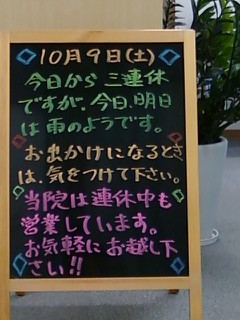 10月9日(土)
今日から三連休
ですが、今日、明日
は雨のようです。
お出かけになるとき
は、気をつけて下さい。
当院は連休中も
営業しています。
お気軽にお越し下
さい!!